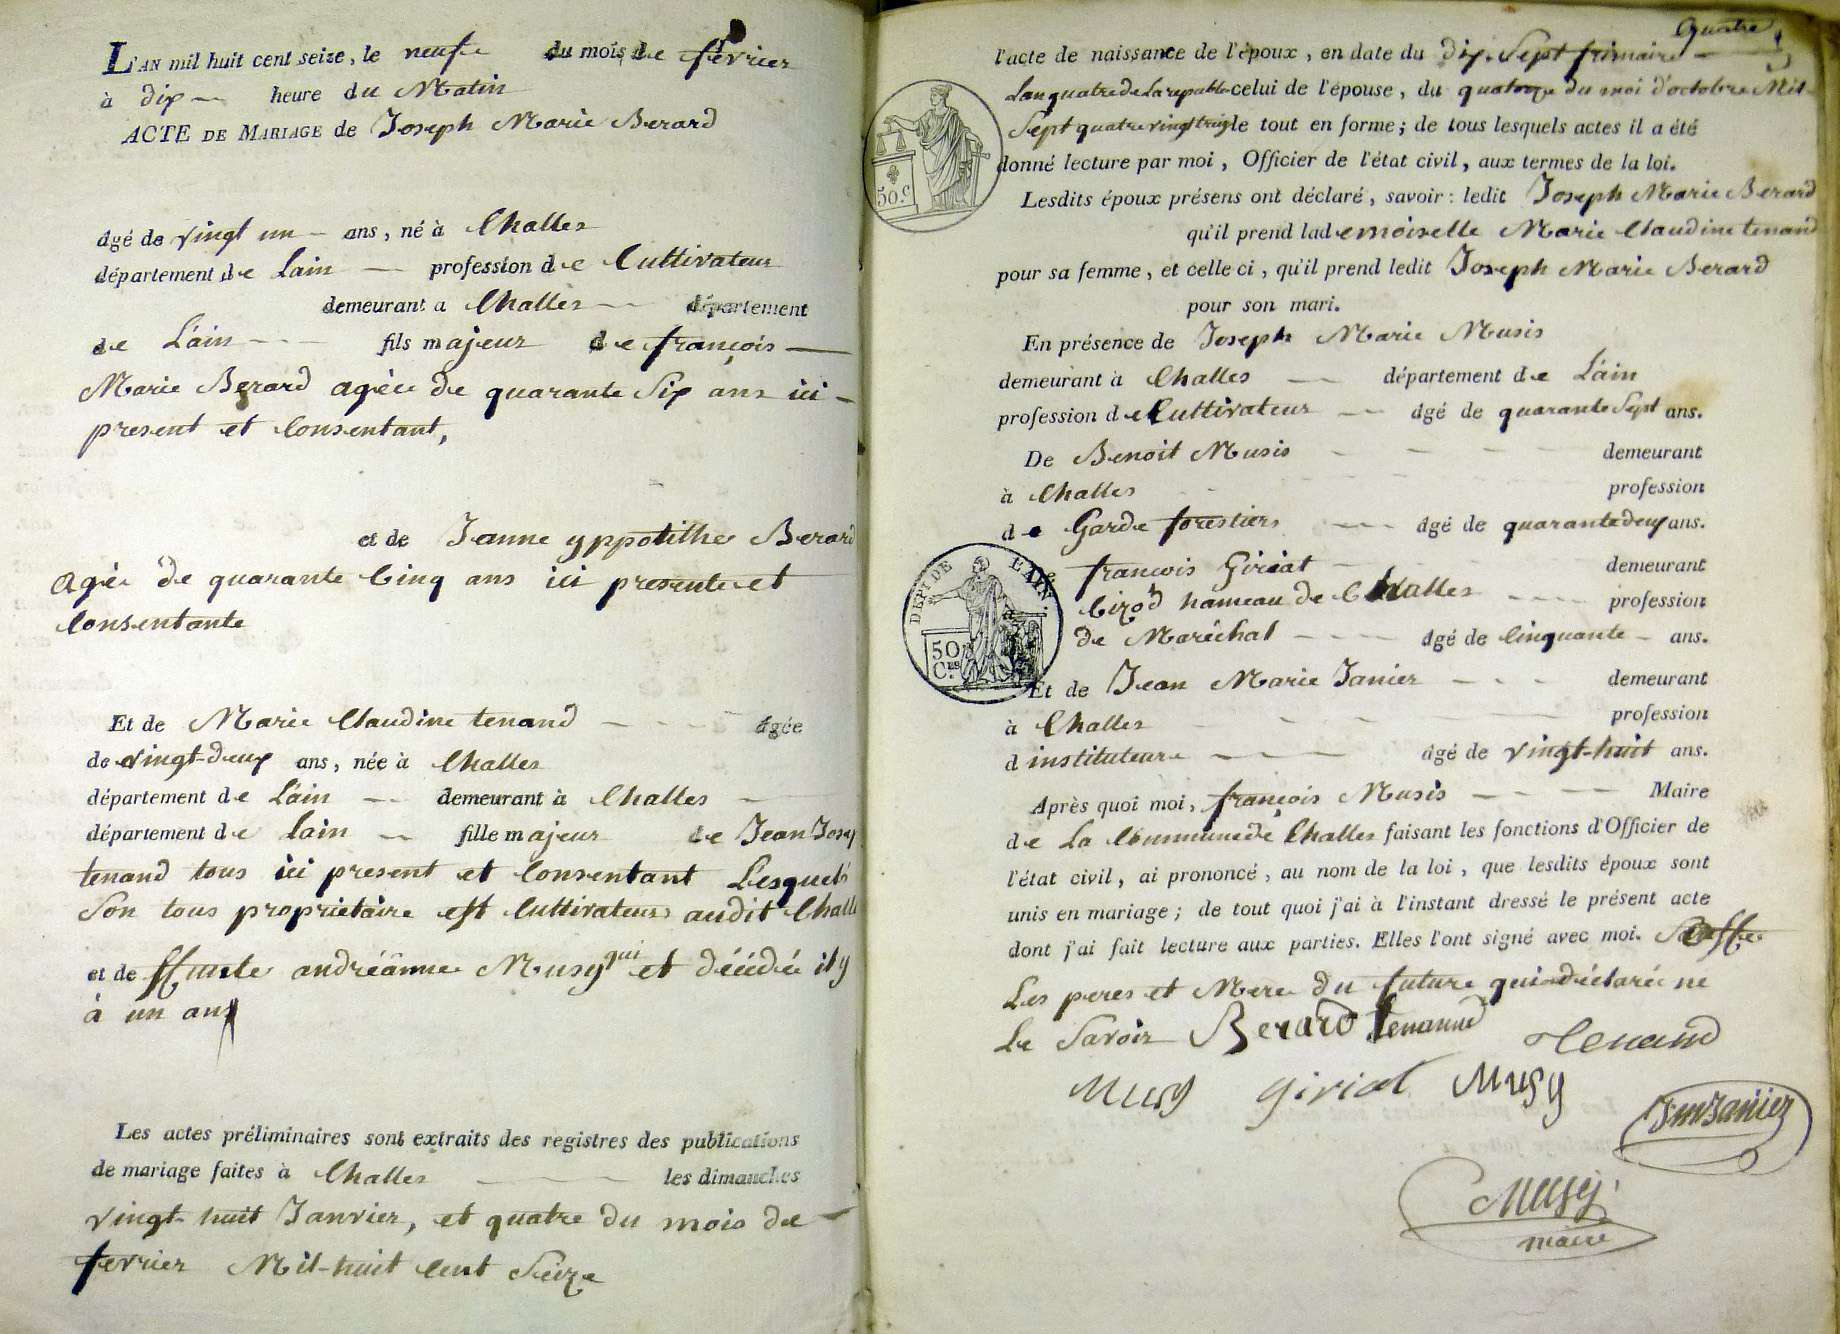 L'AN mil huit cent seize, le neufe du mois de février
à dix heure du Matin
ACTE DE MARIAGE de Joseph Marie Berard
âgé de vingt un ans, né à Challes
département de Lain profession de Cultivateur
demeurant a Challes département
de L'ain fils majeur de françois
Marie Berard agèe de quarante Six ans ici
present et Consentant,
et de Jeanne yppotilhe Berard
agèe de quarante Cinq ans ici presente et
Consentante
Et de Marie Claudine tenand âgée
de vingt-deux ans, née à Challes
département de L'ain demeurant à Challes
département de Lain fille majeur de Jean Josep
tenand tous ici present et Consentant Lesquels
Son tous proprietaire est Cultivateurs audit Challe
et de andréanne Musy qui et décédée il y
à un ans
Les actes préliminaires sont extraits des registres des publications
de mariage faites à Challes les dimanches
vingt-huit Janvier, et quatre du mois de
fevrier Mil-huit Cent Seize
Quatre
l'acte de naissance de l'époux, en date du dix-Sept frimaire
Lan quatre de La republ celui de l'épouse, du quatorze du moi d'octobre Mil
Sept quatre vingt treize le tout en forme; de tous lesquels actes il a été
donné lecture par moi, Officier de l'état civil, aux termes de la loi.
50.c
Lesdits époux présens ont déclaré, savoir: ledit Joseph Marie Berard
qu'il prend lademoiselle Marie Claudine tenand
pour sa femme, et celle ci, qu'il prend ledit Joseph Marie Berard
pour son mari.
En présence de Joseph Marie Musis
demeurant à Challes département de L'ain
profession de Cultivateur âgé de quarante Sept ans.
De Benoit Musis demeurant
à Challes profession
de Garde forestiers âgé de quarante deux ans.
DEP.T DE L'AIN.
50 C.es
françois Giriat demeurant
Cizod hameau de Challes profession
de Maréchal âgé de Cinquante ans.
Et de Jean Marie Janier demeurant
à Challes profession
d instituteur âgé de vingt-huit ans.
Après quoi moi, françois Musis Maire
de La Commune de Challes faisant les fonctions d'Officier de
l'état civil, ai prononcé, au nom de la loi, que lesdits époux sont
unis en mariage; de tout quoi j'ai à l'instant dressé le présent acte
dont j'ai fait lecture aux parties. Elles l'ont signé avec moi.
Les peres et Mere du future qui déclaré ne
Le Savoir Berard Tenannd Tenand
Musy giriat Musy
J m Janier
Musy
maire